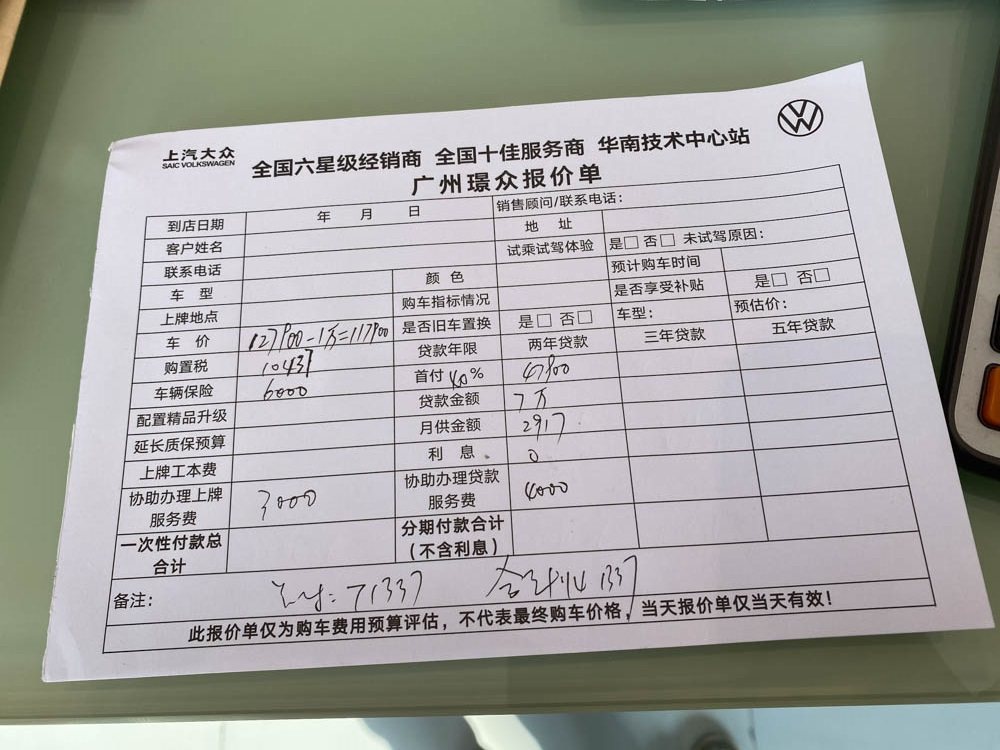 上汽大众
SAIC VOLKSWAGEN
全国六星级经销商 全国十佳服务商 华南技术中心站
广州璟众报价单
到店日期 年 月 日 销售顾问/联系电话：
客户姓名 地 址
联系电话 试乘试驾体验 是□ 否□ 未试驾原因：
车 型 颜 色 预计购车时间
上牌地点 购车指标情况 是否享受补贴 是□ 否□
车 价 127900-1万=117900 是否旧车置换 是□ 否□ 车型： 预估价：
购置税 10437 贷款年限 两年贷款 三年贷款 五年贷款
车辆保险 6000 首付 40% 47900
配置精品升级 贷款金额 7万
延长质保预算 月供金额 2917
上牌工本费 利 息 0
协助办理上牌服务费 3000 协助办理贷款服务费 4000
一次性付款总合计 分期付款合计（不含利息）
备注： 71337 合计141337
此报价单仅为购车费用预算评估，不代表最终购车价格，当天报价单仅当天有效！